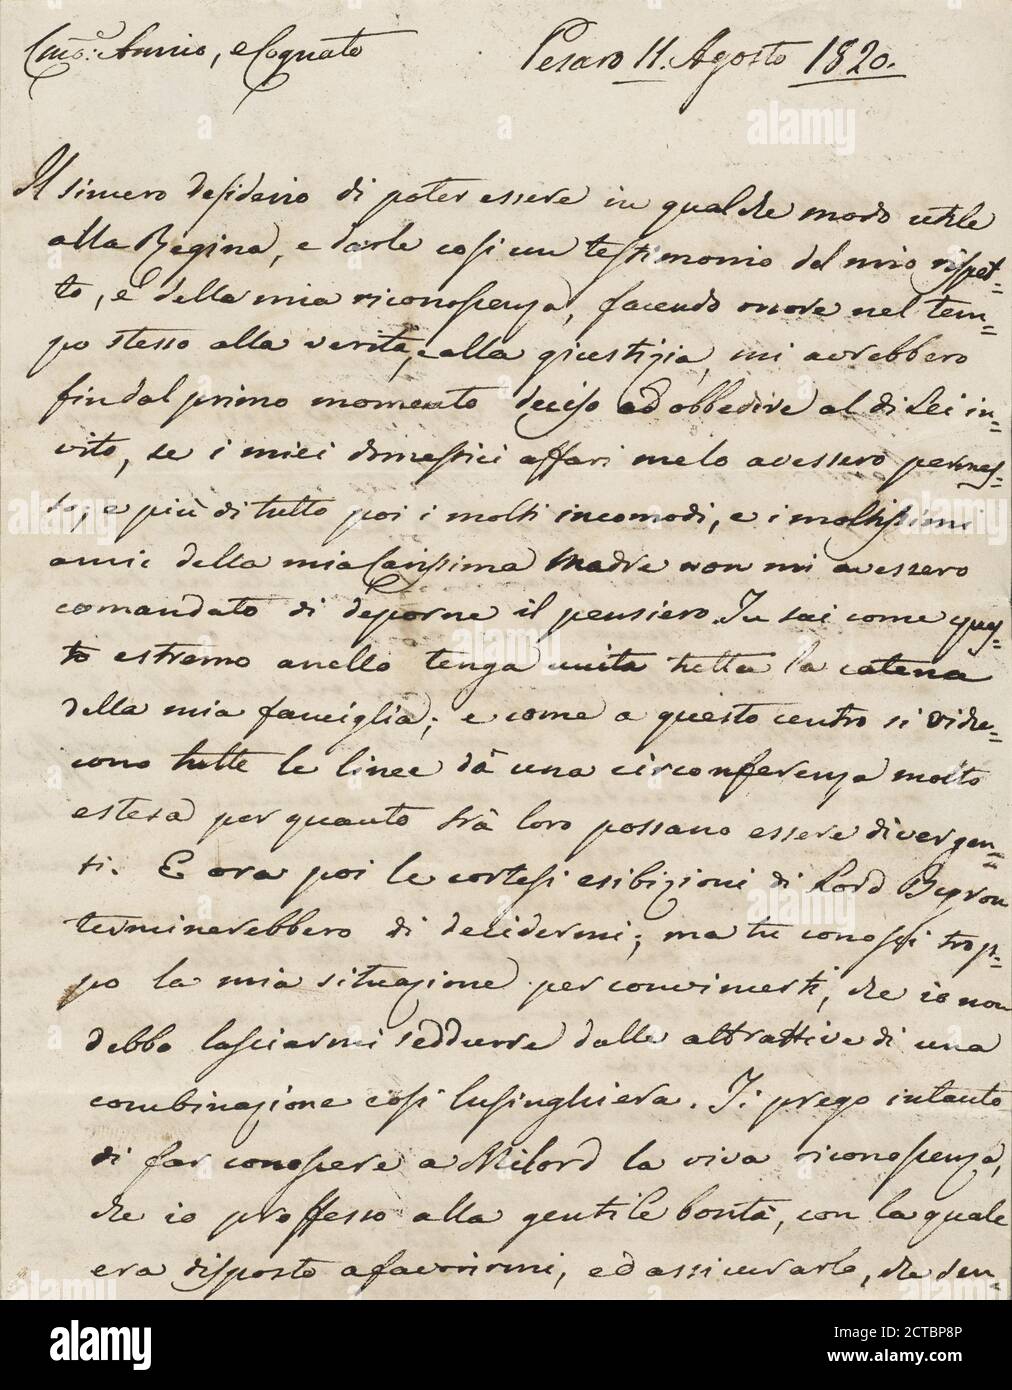 Cmo: Amico, e Cognato
Pesaro 11. Agosto 1820.
Il sincero desiderio di poter essere in qualche modo utile
alla Regina, e darle così un testimonio del mio rispet=
to, e della mia riconoscenza, facendo onore nel tem=
po stesso alla verità, e alla giustizia, mi avrebbero
fin dal primo momento deciso ad obbedire al di Lei in=
vito, se i miei domestici affari me lo avessero permes=
so, e più di tutto poi i molti incomodi, e i moltissimi
anni della mia Carissima Madre non mi avessero
comandato di deporne il pensiero. Tu sai come ques=
to estremo anello tenga unita tutta la catena
della mia famiglia; e come a questo centro si ridu=
cono tutte le linee dà una circonferenza molto
estesa per quanto trà loro possano essere divergen=
ti. E ora poi le cortesi esibizioni di Lord Byron
terminerebbero di decidermi; ma tu conosci trop=
po la mia situazione per convincerti, che io non
debbo lasciarmi seddurre dalle attrattive di una
combinazione così lusinghiera. Ti prego intanto
di far conoscere a Milord la viva riconoscenza,
che io professo alla gentile bontà, con la quale
era disposto a favorirmi, ed assicurarlo, che sen=
alamy
Image ID: 2CTBP8P
www.alamy.com